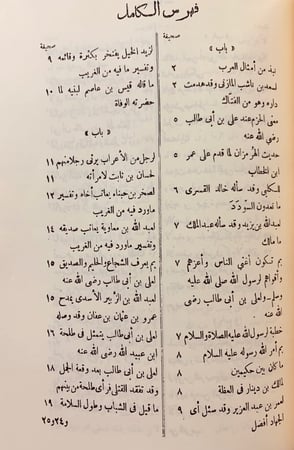 فهرس الكامل
صحيفة
« باب »
نبذ من أمثال العرب ٢
لسعد بن ناشب المازنى وقد هدمت ٢
داره وهو من الفتاك
معنى الحزم عند على بن أبى طالب ٥
رضى الله عنه
حديث الهرمزان لما قدم على عمر ٥
ابن الخطاب
للكلبى وقد سأله خالد القسرى ٦
ما تعدون السؤدد
لعبد الله بن يزيد وقد سأله عبد الملك ٧
ما مالك
بم يكون أغنى الناس وأعزهم ٧
وأقواهم لرسول الله صلى الله عليه
وسلم ولعلى بن أبى طالب رضى
الله عنه
خطبة لرسول الله عليه الصلاة والسلام ٧
بم أمر الله رسوله عليه السلام ٨
ما كان بين حكيمين ٨
لمالك بن دينار فى العظة ٨
لعمر بن عبد العزيز وقد سئل أى ٩
الجهاد أفضل
صحيفة
لزيد الخيل يفتخر بكثرة وقائعه ٩
وتفسير ما فيه من الغريب
ما قاله قيس بن عاصم لبنيه لما ١٠
حضرته الوفاة
« باب »
لرجل من الأعراب يرثى رجلا منهم ١١
لحسان بن ثابت لامرأته ١١
لصخر بن حبناء يعاتب أخاه وتفسير ١٢
ما ورد فيه من الغريب
لعبد الله بن معاوية يعاتب صديقه ١٤
وتفسير ما ورد فيه من الغريب
بم يعرف الشجاع والحليم والصديق ١٥
لعلى بن أبى طالب رضى الله عنه
لعبد الله بن الزبير الأسدى يمدح ١٥
عمرو بن عثمان بن عفان وقد وصله
لعلى بن أبى طالب يتمثل فى طلحة ١٦
ابن عبيد الله رضى الله عنه
لعلى بن أبى طالب بعد وقعة الجمل ١٨
وقد تفقد القتلى فرأى طلحة من بينهم
ما قيل فى الشباب وطول السلامة ١٩
و٢٤ و٢٥